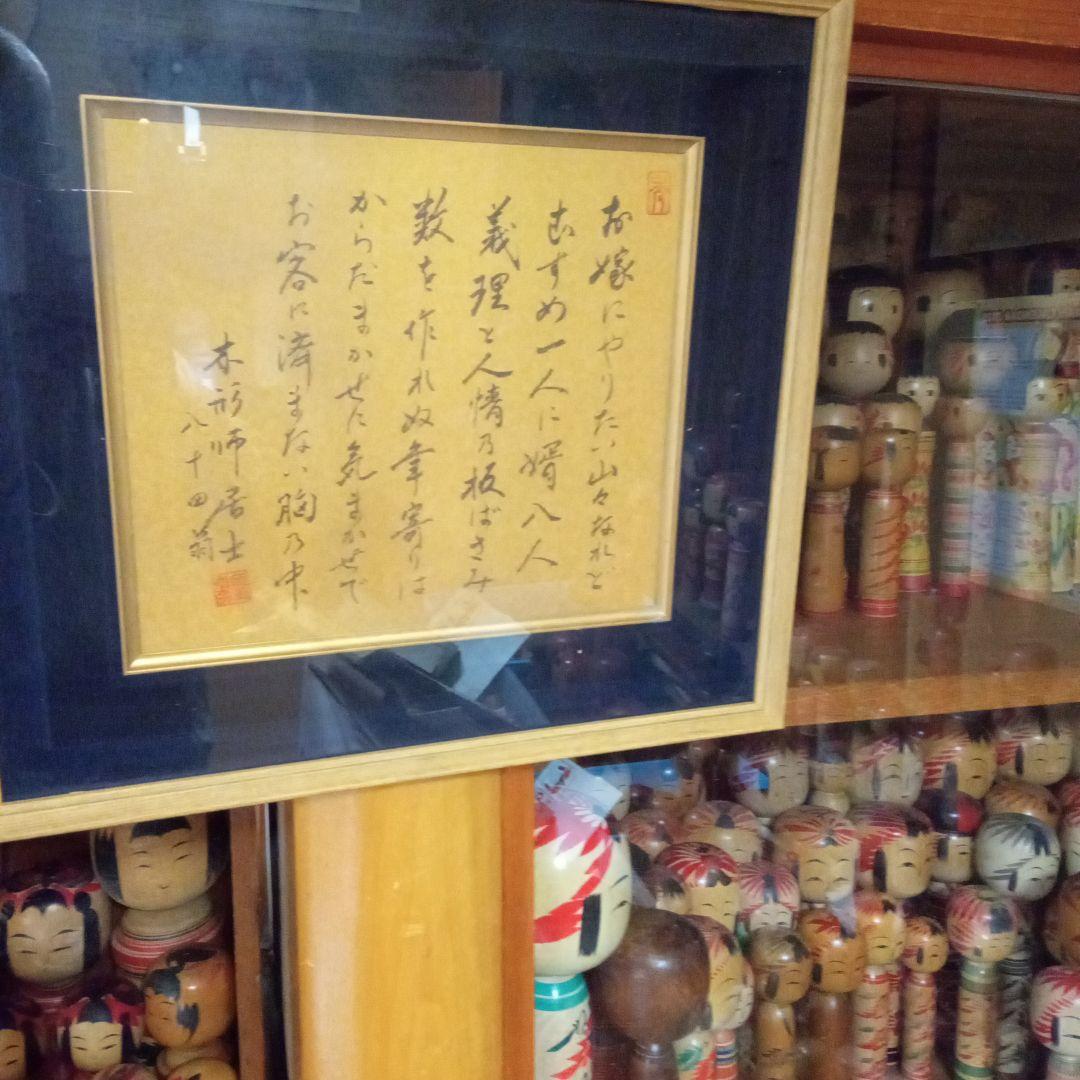 お嫁にやりたい山々なれど
むすめ一人に婿八人
義理と人情乃板ばさみ
数を作れぬ年寄りは
からだまかせに気まかせで
お客に済まない胸乃中
木形師居士
八十四翁